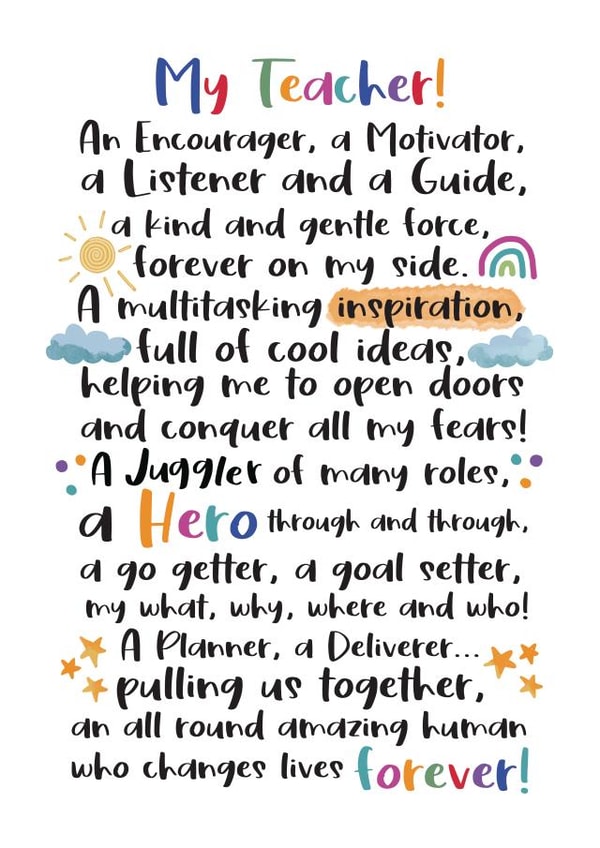 My Teacher!
An Encourager, a Motivator,
a Listener and a Guide,
a kind and gentle force,
forever on my side.
A multitasking inspiration,
full of cool ideas,
helping me to open doors
and conquer all my fears!
A Juggler of many roles,
a Hero through and through,
a go getter, a goal setter,
my what, why, where and who!
A Planner, a Deliverer...
pulling us together,
an all round amazing human
who changes lives forever!